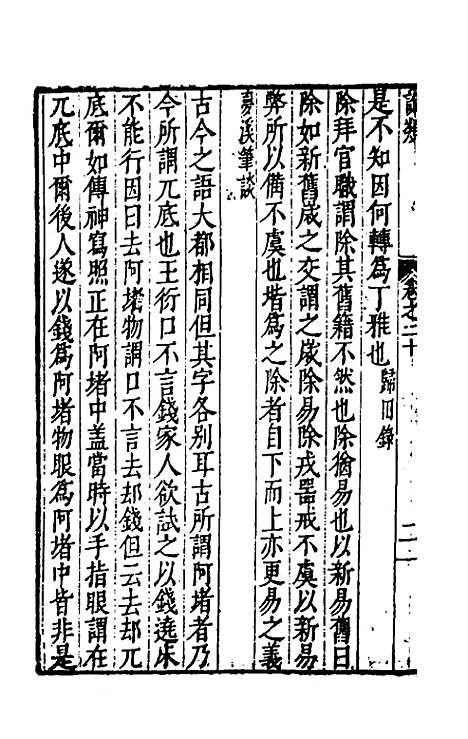 類
卷之二十
是不知因何轉爲丁雅也歸田錄
除拜官職謂除其舊籍不然也除猶易也以新易舊曰
除如新舊歲之交謂之歲除易除戎器戒不虞以新易
弊所以備不虞也堦爲之除者自下而上亦更易之義
夢溪筆談
古今之語大都相同但其字各別耳古所謂阿堵者乃
今所謂兀底也王衍口不言錢家人欲試之以錢遶床
不能行因曰去阿堵物謂口不言去却錢但云去却兀
底爾如傳神寫照正在阿堵中盖當時以手指眼謂在
兀底中爾後人遂以錢爲阿堵物眼爲阿堵中皆非是